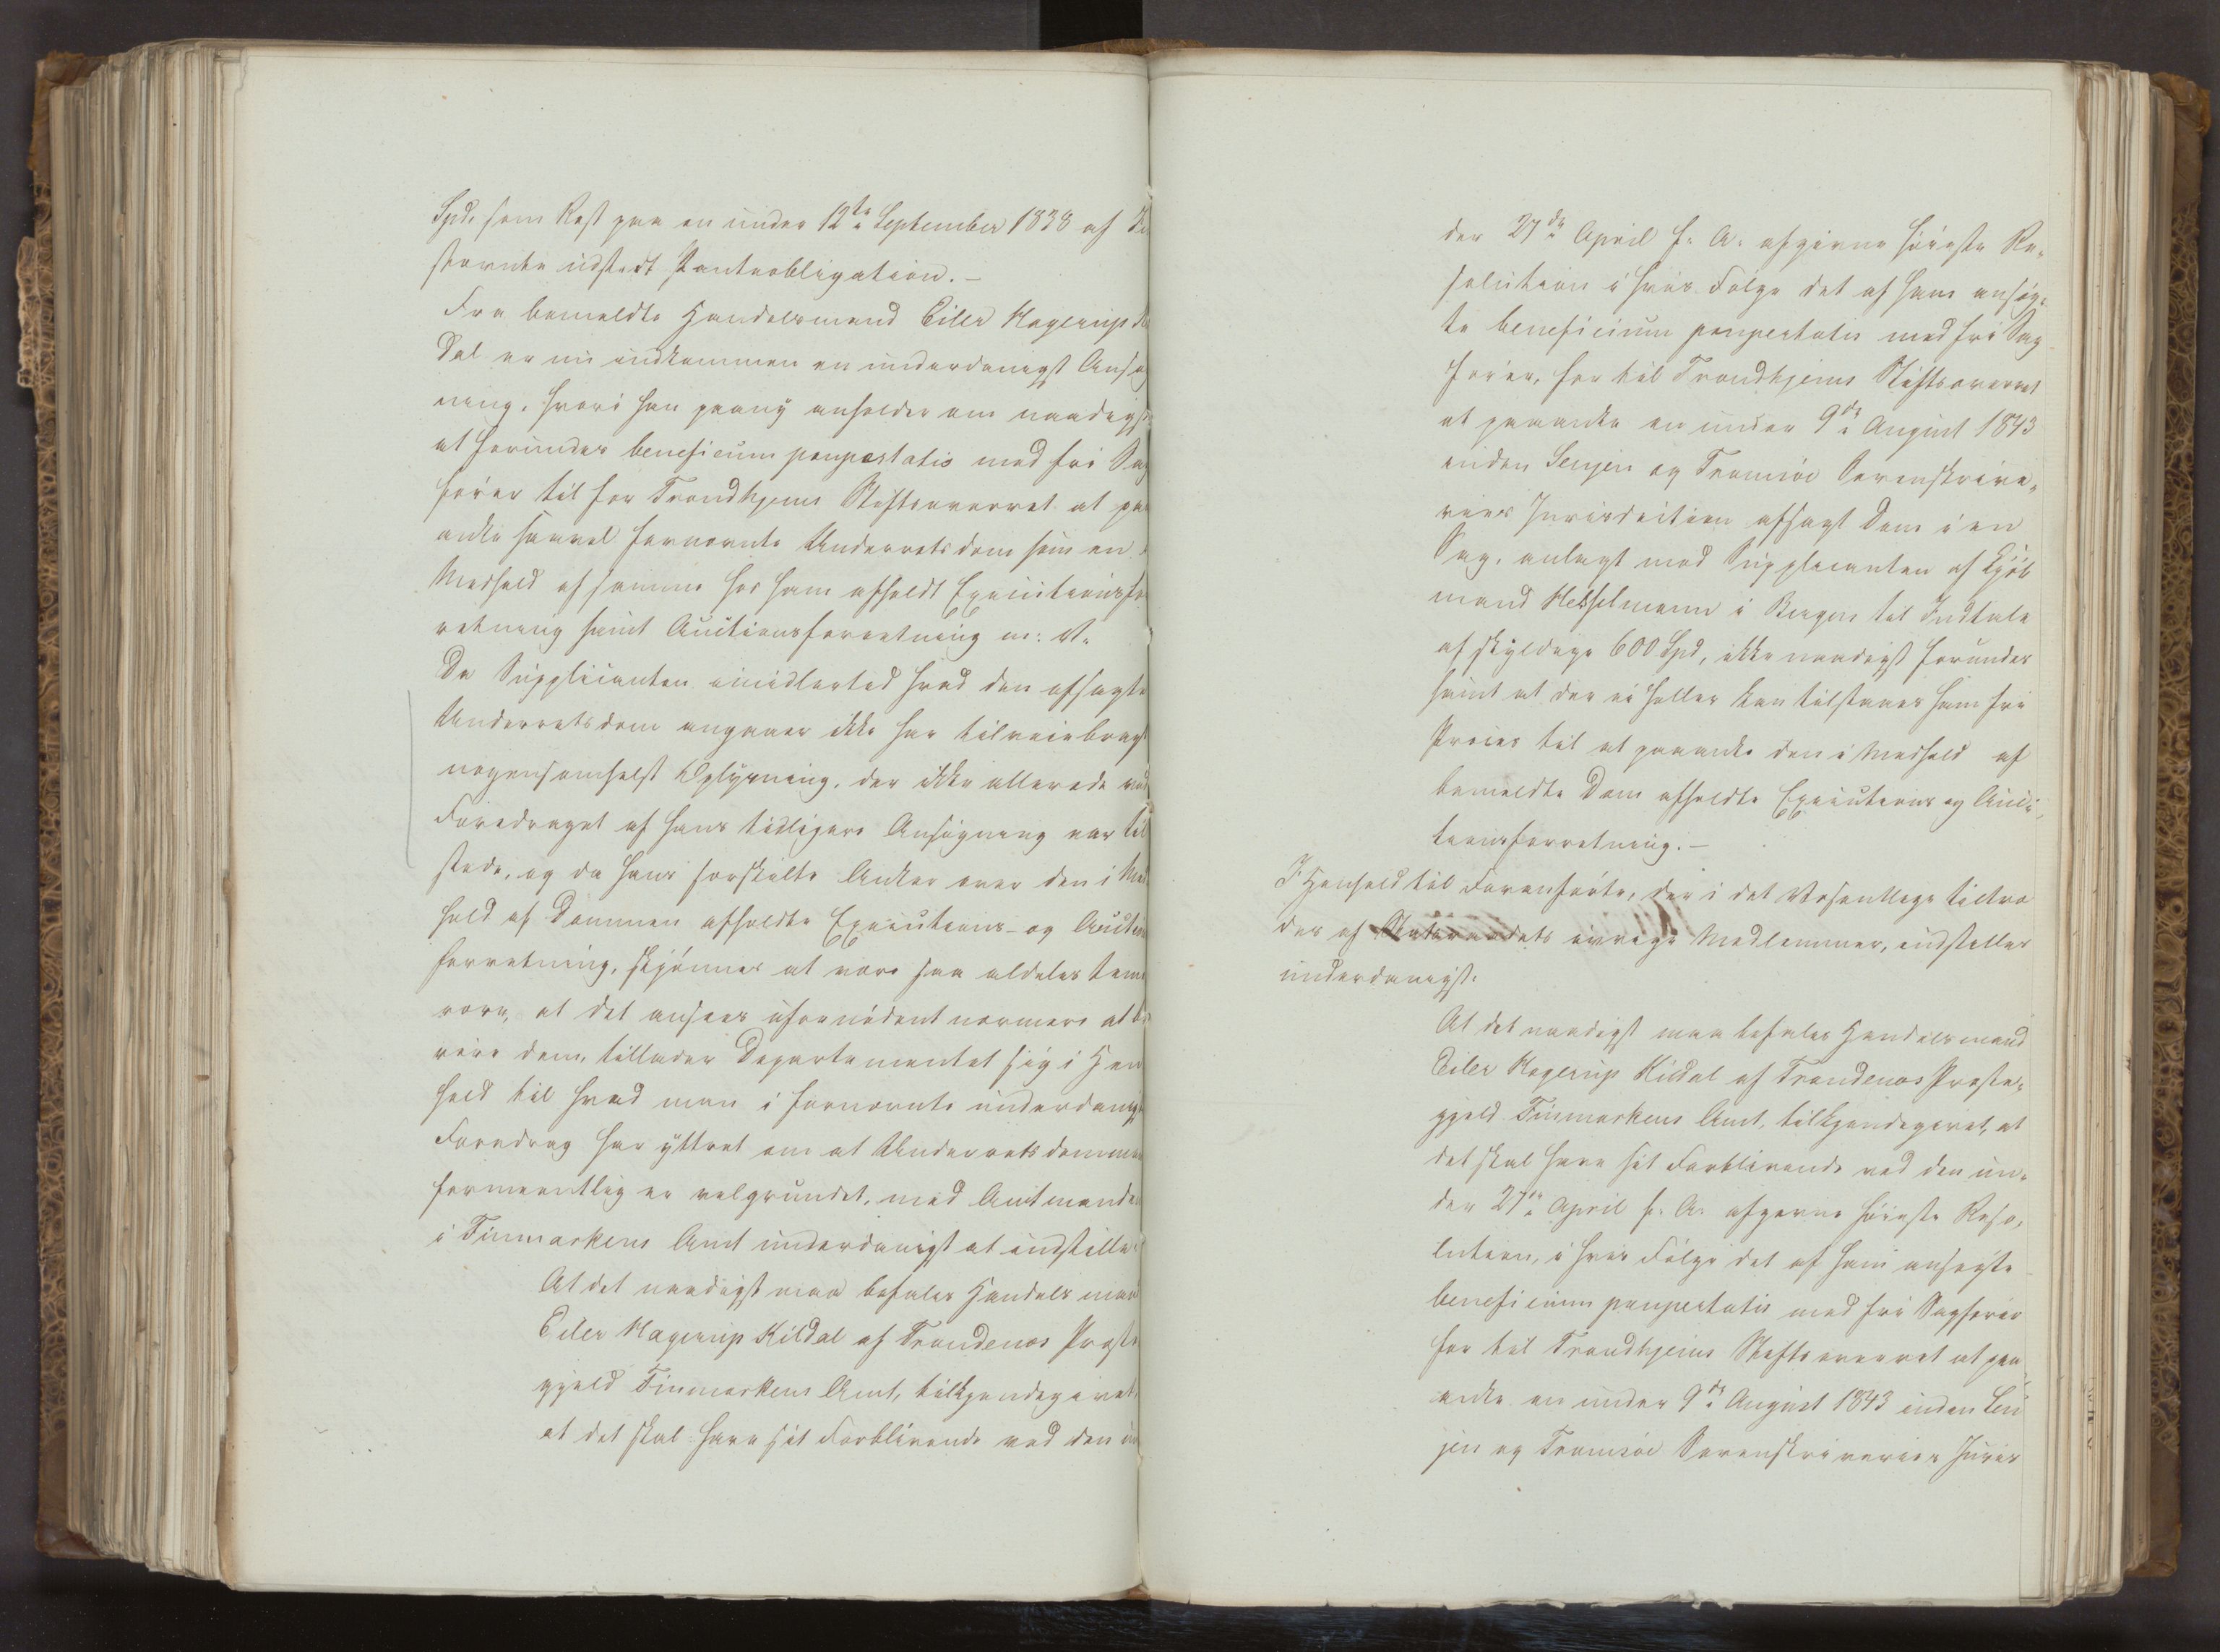 Spd. som Rest paa en under 12te September 1838 af
stævnte udstedt Panteobligation.-
Fra bemeldte Handelsmand Eiler Hagerup
dal er nu indkommen en underdanigst Ansøg
ning, hvori han paany anholder om naadigst
at forundes beneficium paupertatis med fri Sag
fører til for Trondhjems Stiftsoverret at paa
anke saavel fornævnte Underretsdom som en i
Medhold af samme hos ham afholdt Executionsfor
retning samt Auctionsforretning m: V.
Da Supplicanten imidlertid hvad den afsagte
Underretsdom angaaer ikke har tilveiebragt
nogensomhelst Oplysning, der ikke allerede ved
Foredraget af hans tidligere Ansøgning var til
stede, og da hans forskilte Anker over den i Med
hold af Dommen afholdte Executions- og Auction
forretning, skjønnes at være saa aldeles
at det ansees ufornødent nærmere at
røre dem, tillader Departementet sig i Hen
hold til hvad man i fornævnte underdanigst
Foredrag har yttret om at Underretsdommen
formeentlig er velgrundet, med Amtmanden
i Finmarkens Amt underdanigst at indstille:
At det naadigst maa befales Handelsmand
Eiler Hagerup Kildal af Trondenæs Præste
gjeld Finmarkens Amt, tilkjendegivet,
at det skal have sit Forblivende ved den un
der 27de April f. A. afgivne høieste Re-
solution i hvis Følge det af ham ansøg-
te beneficium paupertatis med fri Sag
fører, for til Trondhjems Stiftsoverret
at paaanke en under 9de August 1843
inden Senjen og Tromsøe Sorenskrive-
ries Jurisdiction afsagt Dom i en
Sag, anlagt mod Supplicanten af Kjøb
mand Hesselmann i Bergen til Indtale
af skyldige 600 Spd, ikke naadigst forundes
samt at der ei heller kan tilstaaes ham fri
Proces til at paaanke den i Medhold af
bemeldte Dom afholdte Executions og Auc-
tionsforretning.-
I Henhold til Foranførte, der i det Væsentlige tiltræ
des af Statsraadets øvrige Medlemmer, indstilles
underdanigst:
At det naadigst maa befales Handelsmand
Eiler Hagerup Kildal af Trondenæs Præste-
gjeld Finmarkens Amt, tilkjendegivet, at
det skal have sit Forblivende ved den un-
der 27de April f. A. afgivne høieste Reso-
lution, i hvis Følge det af ham ansøgte
beneficium paupertatis med fri Sagfører
for til Trondhjems Stiftsoverret at paa
anke en under 9de August 1843 inden Sen
jen og Tromsøe Sorenskriveries Juris